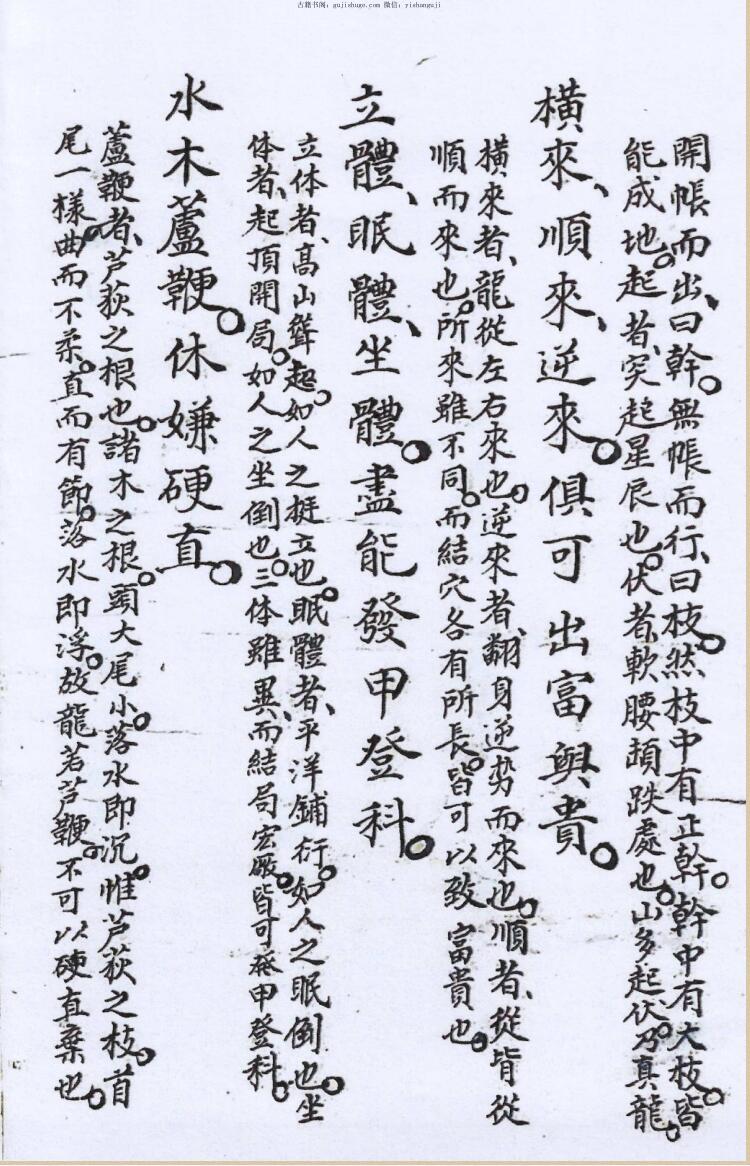 古籍书阁：gujishuge.com 微信：yishanguji
開帳而出、曰幹。無帳而行、曰枝。然枝中有正幹。幹中有大枝。皆
能成地。起者、突起星辰也。伏者、軟腰頓跌處也。山多起伏。乃真龍。
橫來、順來、逆來。俱可出富與貴。
橫來者、龍從左右來也。逆來者、翻身逆势而來也。順者、從背從
順而來也。所來雖不同。而結穴各有所長。皆可以致富貴也。
立體、眠體、坐體。盡能發甲登科。
立体者、髙山聳起。如人之挺立也。眠體者、平洋鋪衍。如人之眠倒也。坐
体者、起頂開局。如人之坐倒也。三体雖異、而結局宏厰。皆可發甲登科。
水木蘆鞭。休嫌硬直。
蘆鞭者、芦荻之根也。諸木之根。頭大尾小。落水即沉。惟芦荻之枝。首
尾一樣。曲而不柔。直而有節。落水即浮。故龍若芦鞭。不可以硬直棄也。